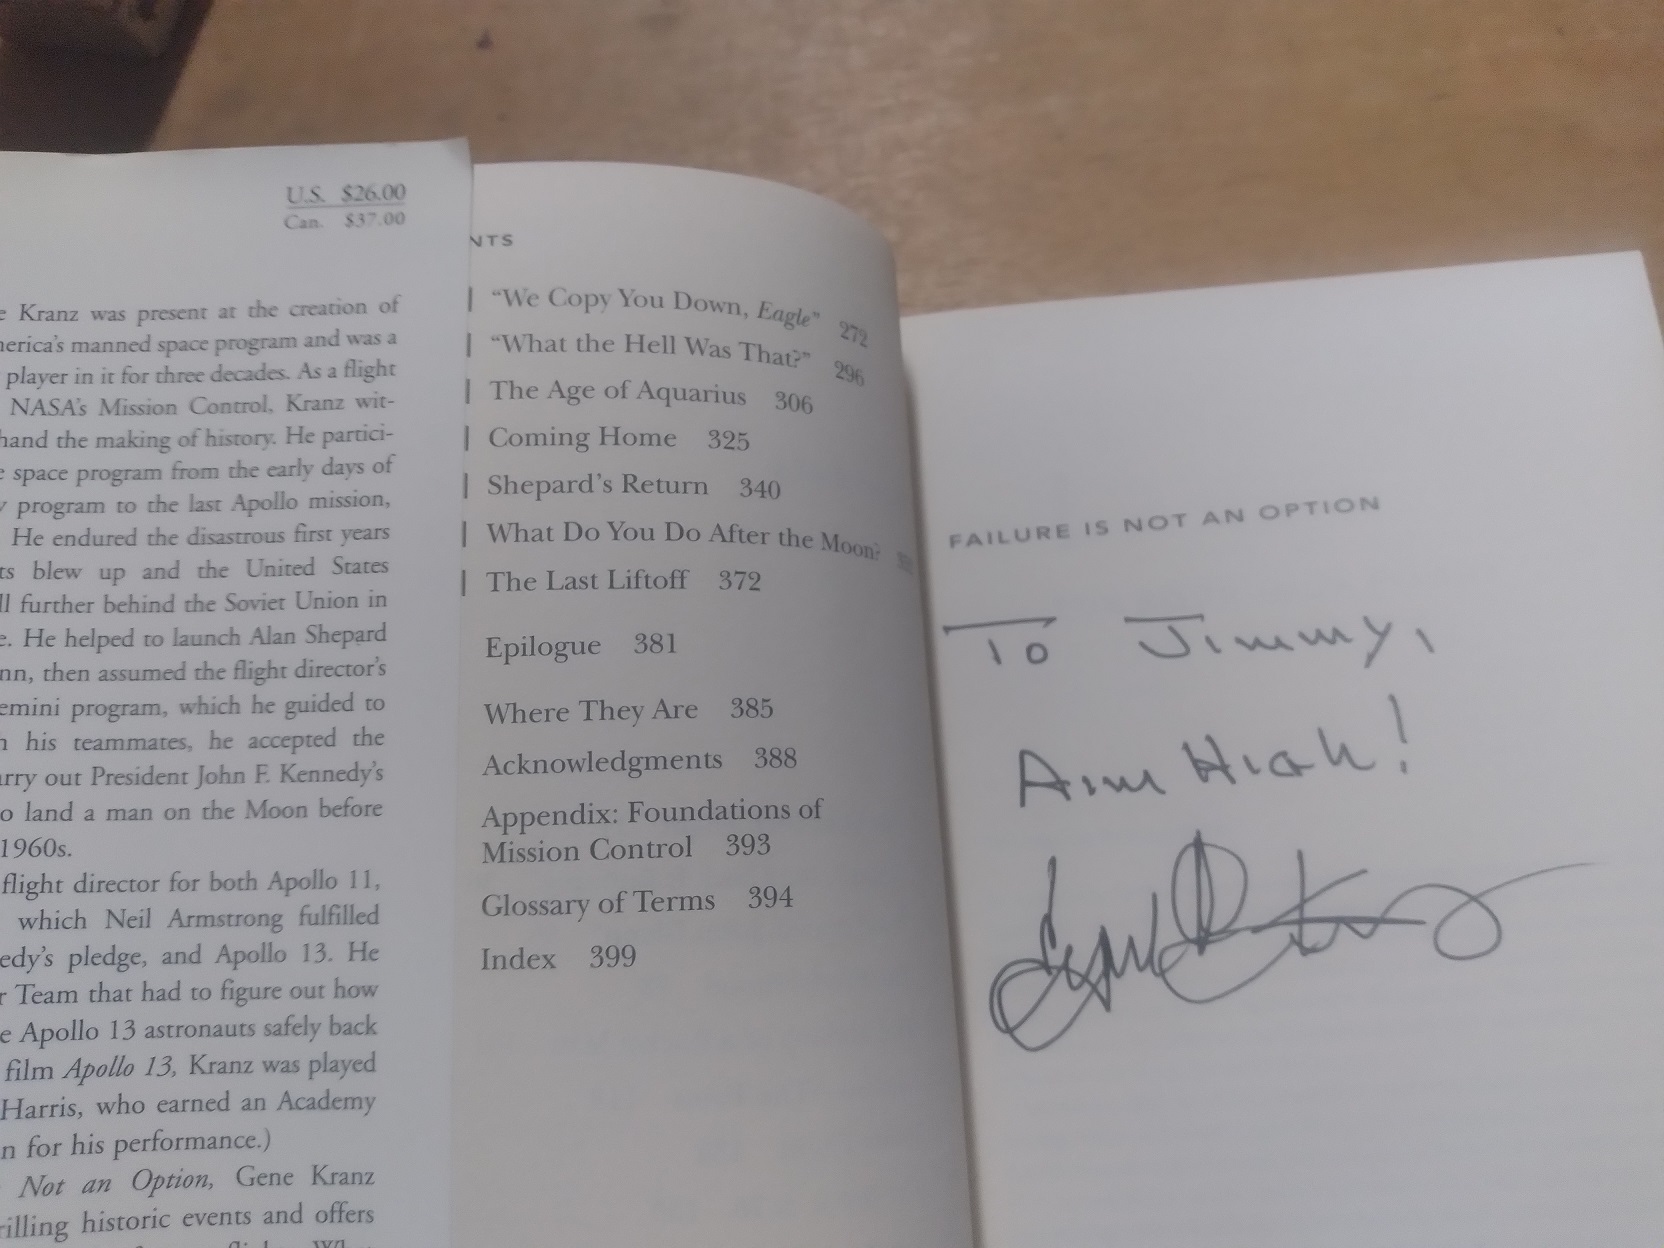 U.S. $26.00
Can. $37.00
Kranz was present at the creation of
merica's manned space program and was a
player in it for three decades. As a flight
NASA's Mission Control, Kranz wit-
hand the making of history. He partici-
e space program from the early days of
y program to the last Apollo mission,
He endured the disastrous first years
ts blew up and the United States
ll further behind the Soviet Union in
e. He helped to launch Alan Shepard
nn, then assumed the flight director's
emini program, which he guided to
h his teammates, he accepted the
arry out President John F. Kennedy's
o land a man on the Moon before
1960s.
flight director for both Apollo 11,
which Neil Armstrong fulfilled
edy's pledge, and Apollo 13. He
r Team that had to figure out how
e Apollo 13 astronauts safely back
film Apollo 13, Kranz was played
Harris, who earned an Academy
n for his performance.)
Not an Option, Gene Kranz
rilling historic events and offers
NTS
"We Copy You Down, Eagle" 272
"What the Hell Was That?" 296
The Age of Aquarius 306
Coming Home 325
Shepard's Return 340
What Do You Do After the Moon?
The Last Liftoff 372
Epilogue 381
Where They Are 385
Acknowledgments 388
Appendix: Foundations of
Mission Control 393
Glossary of Terms 394
Index 399
FAILURE IS NOT AN OPTION
To Jimmy,
Aim High!